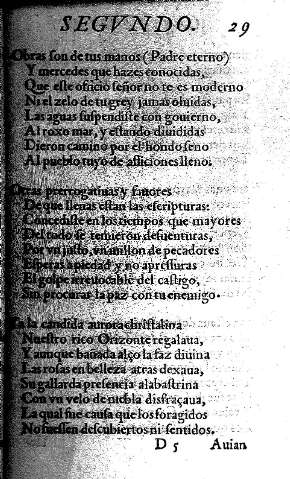 SEGVNDO. 29
Obras son de tus manos (Padre eterno)
Y mercedes que hazes conocidas,
Que este oficio señor no te es moderno
Ni el zelo de tu grey jamas oluidas,
Las aguas suspendiste con gouierno,
Al roxo mar, y estando diuididas
Dieron camino por el hondo seno
Al pueblo tuyo de afliciones lleno.
Otras prerrogatiuas y fauores
De que llenas estan las escripturas:
Concediste en los tiempos que mayores
Del todo se temieron desuenturas,
Por vn justo, vn millon de pecadores
Esperas a piedad y no apressuras
El golpe irreuocable del castigo,
Sin procurar la paz con tu enemigo.
Ya la candida aurora christalina
Nuestro rico Orizonte regalaua,
Y aunque bañada alço la faz diuina
Las rosas en belleza atras dexaua,
Su gallarda presencia alabastrina
Con vn velo de niebla disfraçaua,
La qual fue causa que los foragidos
No fuessen descubiertos ni sentidos.
D 5 Auian